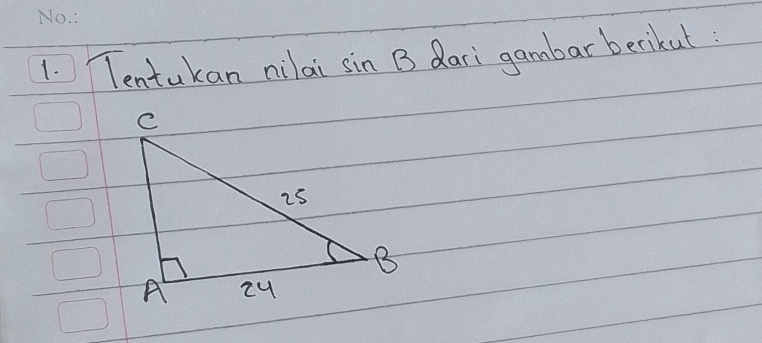 No.:
1. Tentukan nilai sin B dari gambar berikut :
C
25
B
A
24